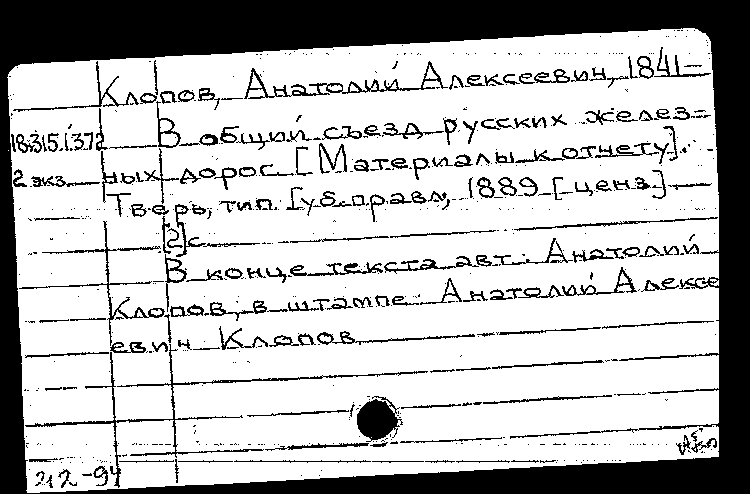 Клопов, Анатолий Алексеевич, 1841–
18.315.1.372 В общий съезд русских желез=
2 экз. ных дорог [Материалы к отчету].
Тверь, тип. Губ. правл., 1889 [ценз.] –
[2] с.
В конце текста авт.: Анатолий
Клопов, в штампе: Анатолий Алексе
евич Клопов
212-94